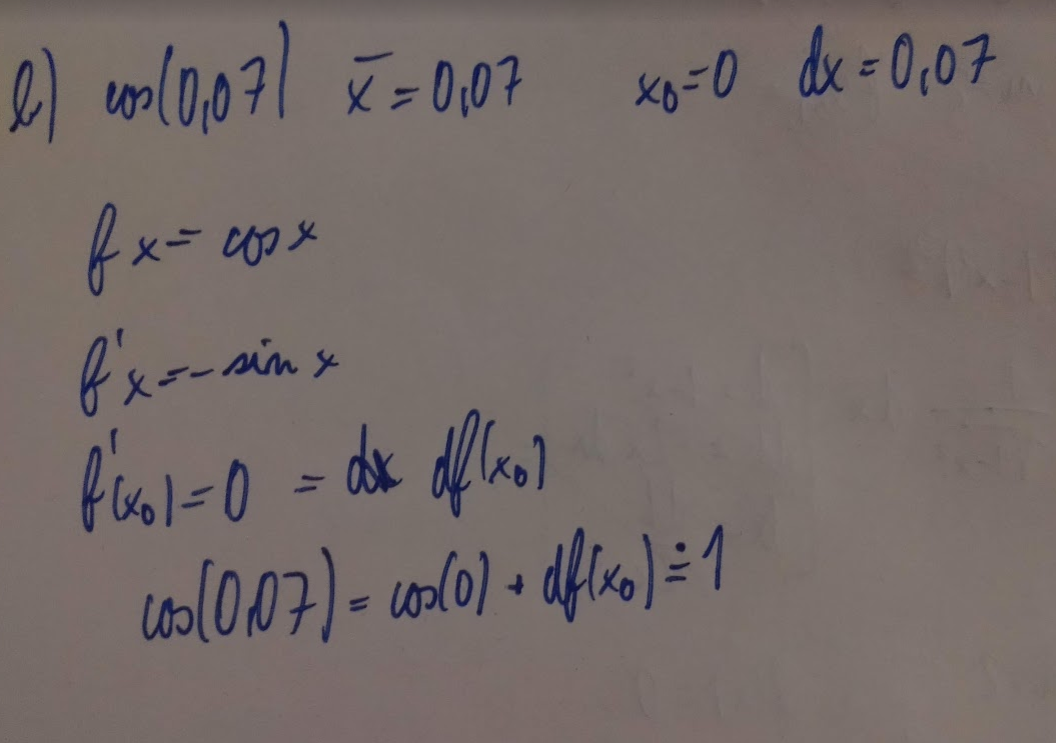 b) cos(0,07) x̄ = 0,07 x₀ = 0 dx = 0,07
f x = cos x
f' x = - sin x
f'(x₀) = 0 = dx df(x₀)
cos(0,07) = cos(0) + df(x₀) ≐ 1